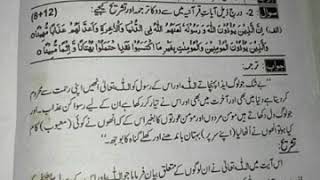 سوال -2 درج ذیل آیات قرآنیہ میں سے دو کا ترجمہ اور تشریح کیجیے۔ (8+12)
(الف) اِنَّ الَّذِیْنَ یُؤْذُوْنَ اللّٰهَ وَ رَسُوْلَهٗ لَعَنَهُمُ اللّٰهُ فِی الدُّنْیَا وَالْاٰخِرَةِ وَاَعَدَّ لَهُمْ عَذَابًا مُّهِیْنًا
وَالَّذِیْنَ یُؤْذُوْنَ الْمُؤْمِنِیْنَ وَالْمُؤْمِنٰتِ بِغَیْرِ مَا اكْتَسَبُوْا فَقَدِ احْتَمَلُوْا بُهْتَانًا وَّ اِثْمًا مُّبِیْنًا
جواب ترجمہ:
بے شک جو لوگ ایذا پہنچاتے ہیں اللہ تعالیٰ اور اس کے رسول کو اللہ تعالیٰ انھیں اپنی رحمت سے محروم
کر دیتا ہے دنیا میں بھی اور آخرت میں بھی اور اس نے تیار کر رکھا ہے ان کے لیے رسوا کن عذاب۔ اور
جو لوگ دل دکھاتے ہیں مومن مردوں اور مومن عورتوں کا بغیر اس کے کہ انھوں نے کوئی (معیوب) کام
کیا ہو تو انھوں نے اٹھا لیا (اپنے سر پر) بہتان باندھنے اور کھلے گناہ کا بوجھ۔
تشریح:
اس آیت میں اللہ تعالیٰ نے ان لوگوں کے متعلق بیان فرمایا جو اللہ تعالیٰ اور اس کے